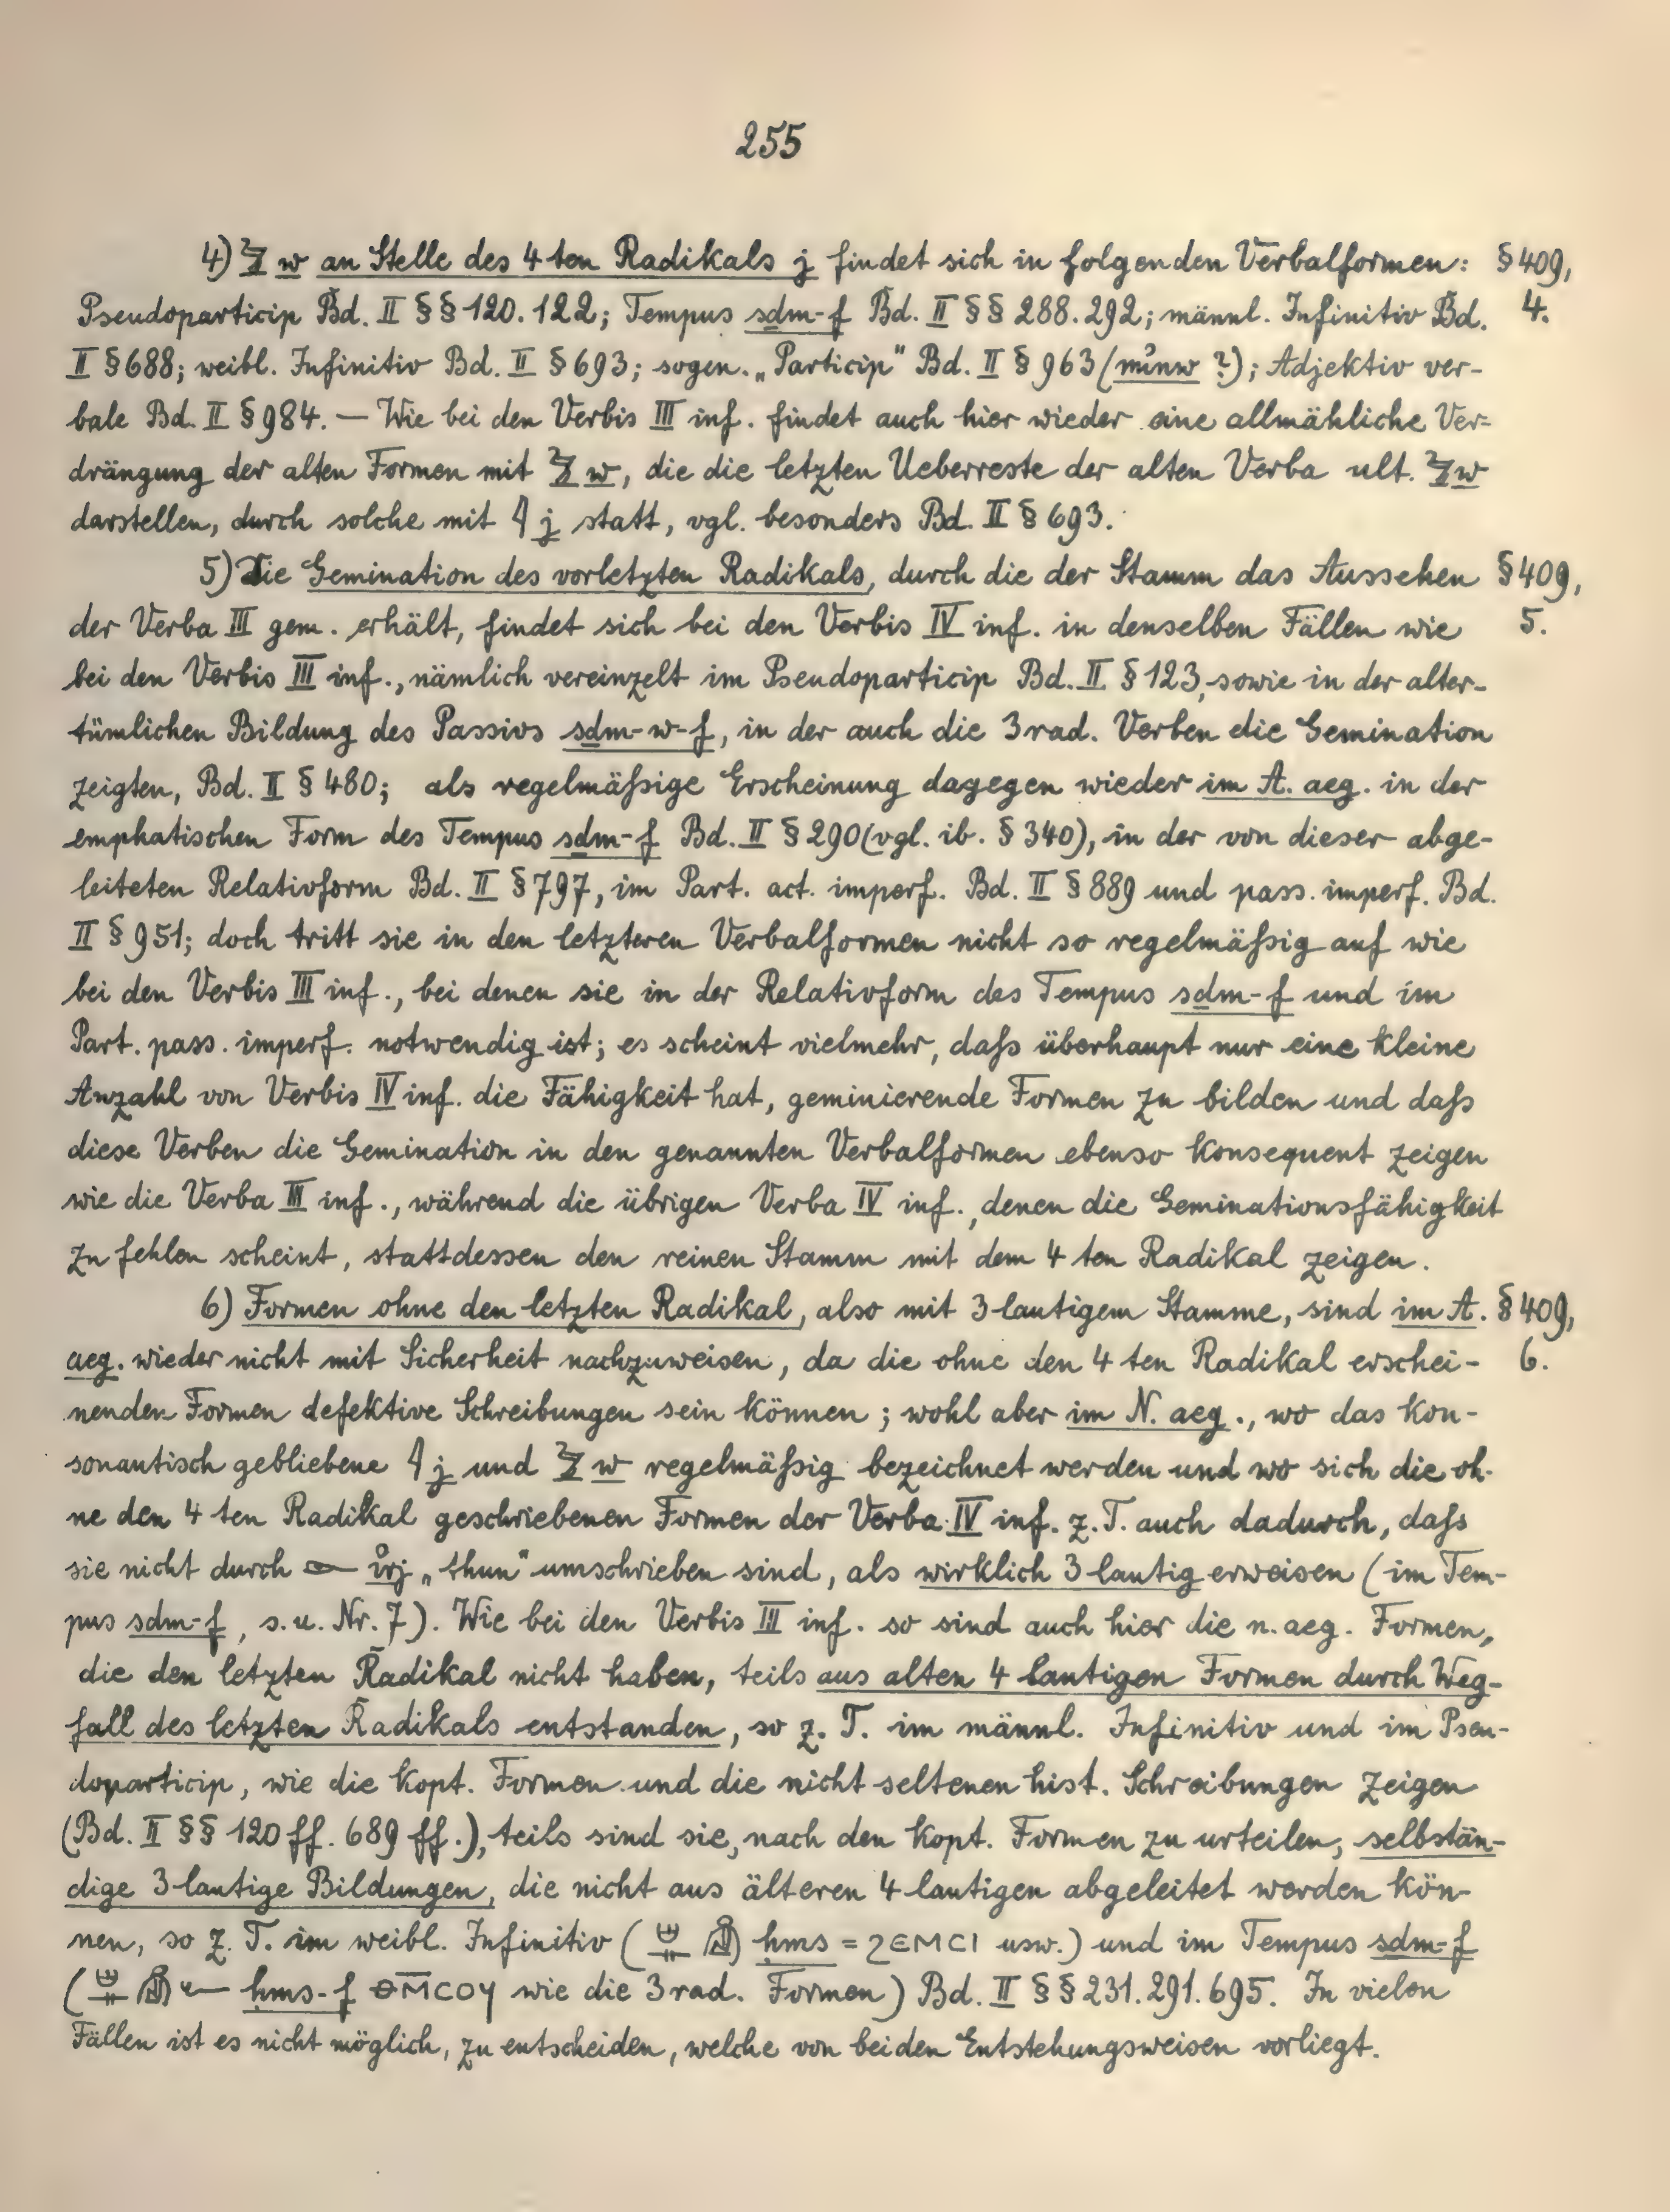 255
4) 𓅱 w an Stelle des 4 ten Radikals j findet sich in folgenden Verbalformen: § 409,
Pseudoparticip Bd. II §§ 120. 122; Tempus sdm-f Bd. II §§ 288. 292; männl. Infinitiv Bd. 4.
II § 688; weibl. Infinitiv Bd. II § 693; sogen. „Particip" Bd. II § 963 (mꜥnw ?); Adjektiv ver-
bale Bd. II § 984. — Wie bei den Verbis III inf. findet auch hier wieder eine allmähliche Ver-
drängung der alten Formen mit 𓅱 w, die die letzten Ueberreste der alten Verba ult. 𓅱 w
darstellen, durch solche mit 𓇋 j statt, vgl. besonders Bd. II § 693.
5) Die Gemination des vorletzten Radikals, durch die der Stamm das Aussehen § 409,
der Verba III gem. erhält, findet sich bei den Verbis IV inf. in denselben Fällen wie 5.
bei den Verbis III inf., nämlich vereinzelt im Pseudoparticip Bd. II § 123, sowie in der alter-
tümlichen Bildung des Passivs sdm-w-f, in der auch die 3rad. Verben die Gemination
zeigten, Bd. II § 480; als regelmäßige Erscheinung dagegen wieder im A. aeg. in der
emphatischen Form des Tempus sdm-f Bd. II § 290 (vgl. ib. § 340), in der von dieser abge-
leiteten Relativform Bd. II § 797, im Part. act. imperf. Bd. II § 889 und pass. imperf. Bd.
II § 951; doch tritt sie in den letzteren Verbalformen nicht so regelmäßig auf wie
bei den Verbis III inf., bei denen sie in der Relativform des Tempus sdm-f und im
Part. pass. imperf. notwendig ist; es scheint vielmehr, daß überhaupt nur eine kleine
Anzahl von Verbis IV inf. die Fähigkeit hat, geminierende Formen zu bilden und daß
diese Verben die Gemination in den genannten Verbalformen ebenso konsequent zeigen
wie die Verba III inf., während die übrigen Verba IV inf., denen die Geminationsfähigkeit
zu fehlen scheint, stattdessen den reinen Stamm mit dem 4 ten Radikal zeigen.
6) Formen ohne den letzten Radikal, also mit 3 lautigem Stamme, sind im A. § 409,
aeg. wieder nicht mit Sicherheit nachzuweisen, da die ohne den 4 ten Radikal erschei- 6.
nenden Formen defektive Schreibungen sein können; wohl aber im N. aeg., wo das kon-
sonantisch gebliebene 𓇋 j und 𓅱 w regelmäßig bezeichnet werden und wo sich die oh-
ne den 4 ten Radikal geschriebenen Formen der Verba IV inf. z. T. auch dadurch, daß
sie nicht durch 𓁹 irj „thun" umschrieben sind, als wirklich 3 lautig erweisen (im Tem-
pus sdm-f, s. u. Nr. 7). Wie bei den Verbis III inf. so sind auch hier die n. aeg. Formen,
die den letzten Radikal nicht haben, teils aus alten 4 lautigen Formen durch Weg-
fall des letzten Radikals entstanden, so z. T. im männl. Infinitiv und im Pseu-
doparticip, wie die kopt. Formen und die nicht seltenen hist. Schreibungen zeigen
(Bd. II §§ 120 ff. 689 ff.), teils sind sie, nach den kopt. Formen zu urteilen, selbstän-
dige 3 lautige Bildungen, die nicht aus älteren 4 lautigen abgeleitet werden kön-
nen, so z. T. im weibl. Infinitiv ( ḥms = ϩⲉⲙⲥⲓ usw.) und im Tempus sdm-f
( ḥms-f ⲑⲙ̅ⲥⲟϥ wie die 3rad. Formen) Bd. II §§ 231. 291. 695. In vielen
Fällen ist es nicht möglich, zu entscheiden, welche von beiden Entstehungsweisen vorliegt.